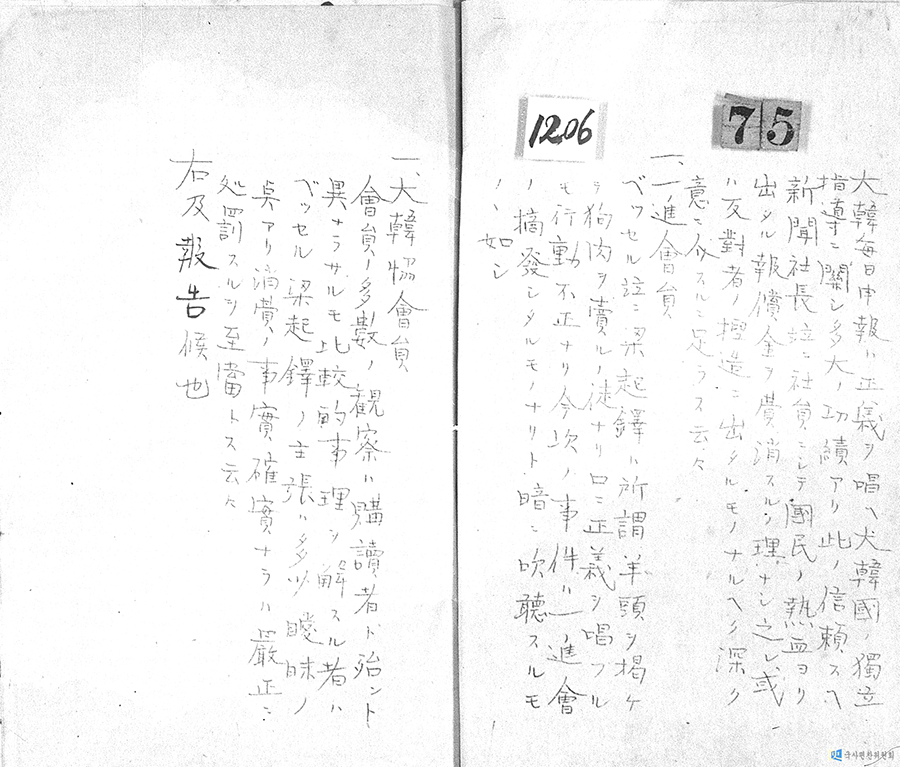 75
大韓每日申報ハ正義ヲ唱ヘ大韓國ノ獨立
指導ニ關シ多大ノ功績アリ此ノ信賴スヘキ
新聞社長竝ニ社員ニシテ國民ノ熱血ヨリ
出タル報償金ヲ費消スルノ理ナシ之レ或
ハ反對者ノ捏造ニ出タルモノナルヘク深ク
意ニ介スルニ足ラス云々
1206
一、一進會員
ベッセル竝ニ梁起鐸ハ所謂羊頭ヲ掲ケ
テ狗肉ヲ賣ルノ徒ナリ口ニ正義ヲ唱フル
モ行動不正ナリ今次ノ事件ハ一進會
ノ摘發シタルモノナリト暗ニ吹聽スルモ
ノヽ如シ
一、大韓協會員
會員ノ多數ノ觀察ハ購讀者ト殆ント
異ナラサルモ比較的事理ヲ解スル者ハ
ベッセル梁起鐸ノ主張ハ多少曖昧ノ
点アリ消費ノ事實確實ナラハ嚴正ニ
処罰スルヲ至當トス云々
右及報告候也
국사편찬위원회